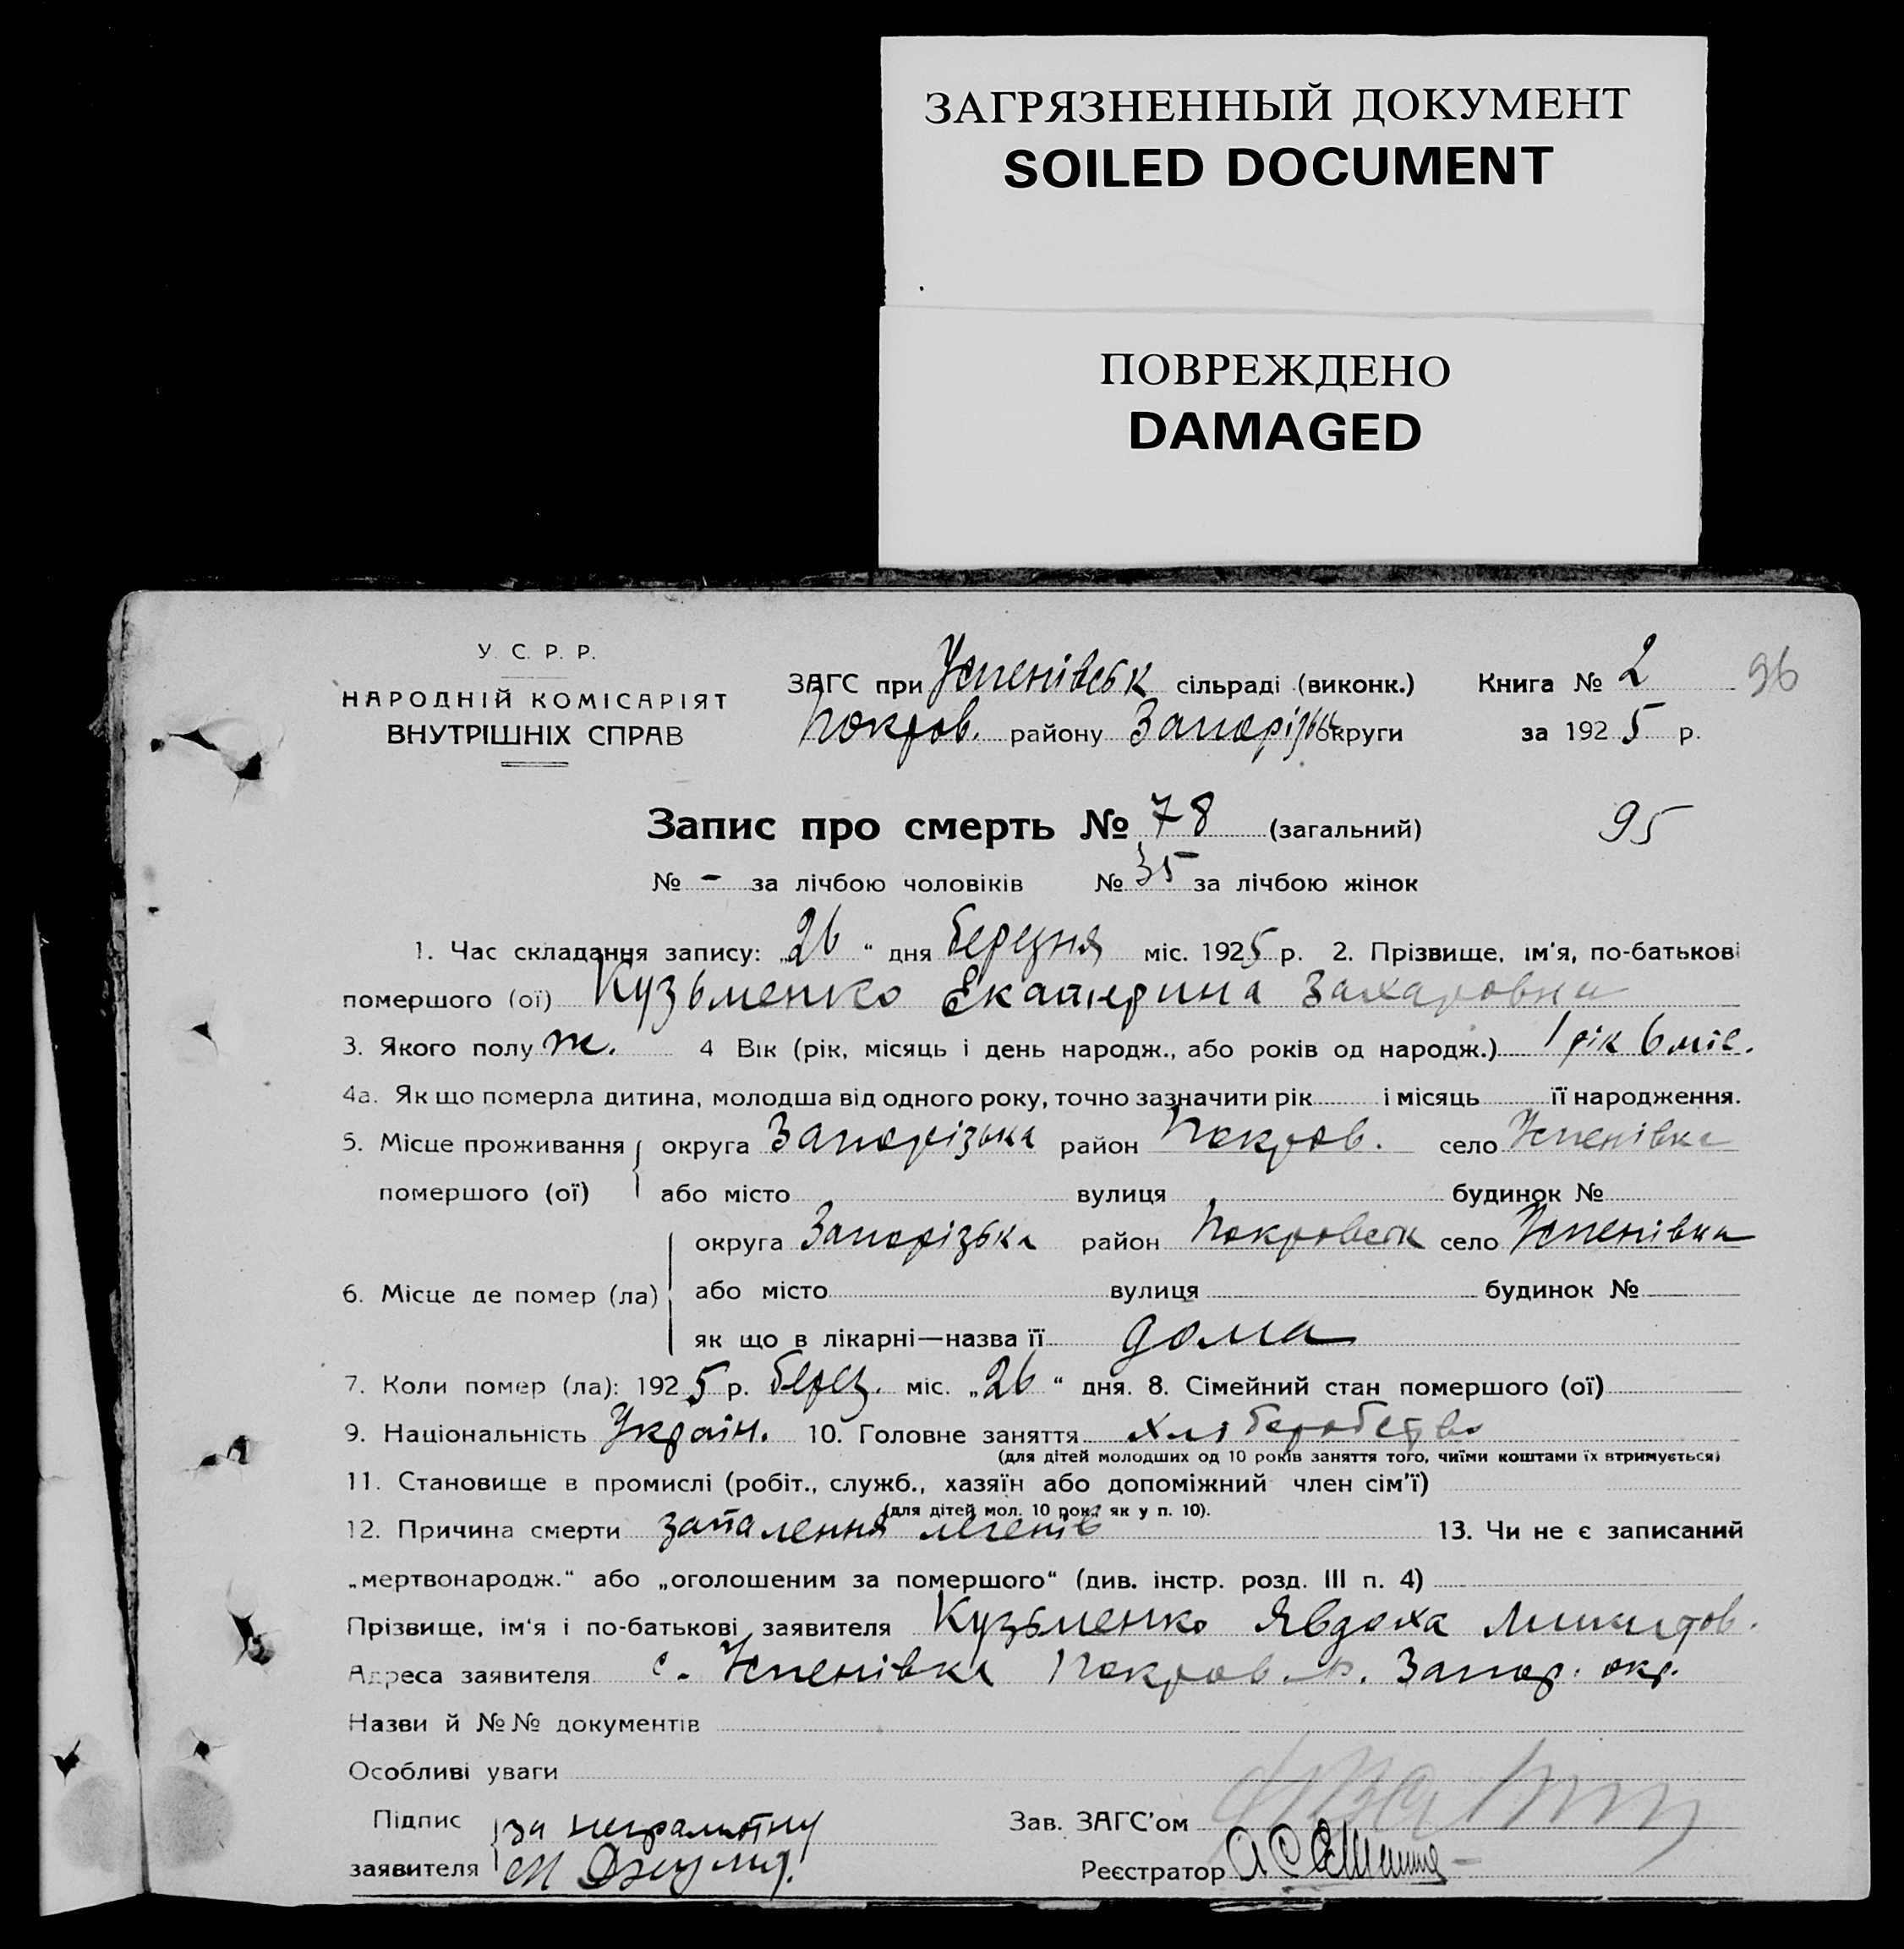 ЗАГРЯЗНЕННЫЙ ДОКУМЕНТ
SOILED DOCUMENT
ПОВРЕЖДЕНО
DAMAGED
У. С. Р. Р.
НАРОДНІЙ КОМІСАРІЯТ
ВНУТРІШНІХ СПРАВ
ЗАГС при Успенівськ сільраді (виконк.) Книга № 2 96
Покров. району Запорізьк округи за 1925 р.
Запис про смерть № 78 (загальний) 95
№ - за лічбою чоловіків № 35 за лічбою жінок
1. Час складання запису: „26“ дня березня міс. 1925 р. 2. Прізвище, ім'я, по-батькові
помершого (ої) Кузьменко Екатерина Захаровна
3. Якого полу ж. 4 Вік (рік, місяць і день народж., або років од народж.) 1 рік 6 міс.
4а. Як що померла дитина, молодша від одного року, точно зазначити рік і місяць її народження.
5. Місце проживання округа Запорізька район Покров. село Успенівка
помершого (ої) або місто вулиця будинок №
округа Запорізька район Покровськ село Успенівка
6. Місце де помер (ла) або місто вулиця будинок №
як що в лікарні—назва її дома
7. Коли помер (ла): 1925 р. берез. міс. „26“ дня. 8. Сімейний стан помершого (ої)
9. Національність Україн. 10. Головне заняття хліборобство
(для дітей молодших од 10 років заняття того, чиїми коштами їх втримується)
11. Становище в промислі (робіт., служб., хазяїн або допоміжний член сім'ї)
(для дітей мол. 10 рок. як у п. 10).
12. Причина смерти запалення легенів 13. Чи не є записаний
„мертвонародж.“ або „оголошеним за помершого“ (див. інстр. розд. III п. 4)
Прізвище, ім'я і по-батькові заявителя Кузьменко Явдоха Микитов.
Адреса заявителя с. Успенівка Покров. р. Запор. окр.
Назви й №№ документів
Особливі уваги
Підпис за неграмотну Зав. ЗАГС'ом
заявителя Реєстратор